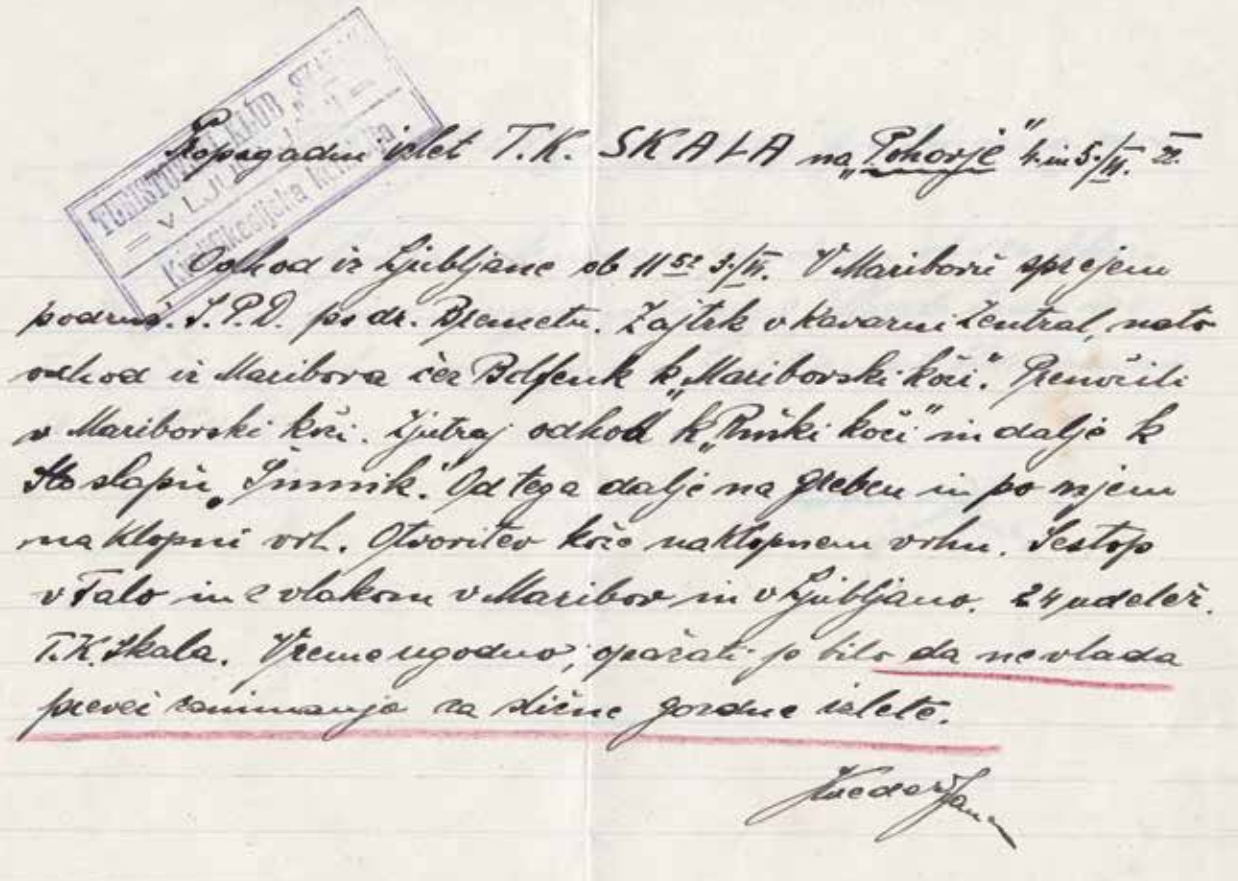 TURISTOVSKI KLUB SKALA
= V LJUBLJANI =
Propagadni izlet T.K. SKALA na „Pohorje“ 4. in 5./II.
Odhod iz Ljubljane ob 11 52 3./II. V Mariboru sprejem
podruž. S.P.D. po dr. Zajtrk v Kavarni Zentral, nato
odhod iz Maribora čez Bolfenk k „Mariborski koči“. Prenočili
v Mariborski koči. Zjutraj odhod k „Ruški koči“ in dalje k
slapu „Šumik“. Od tega dalje na greben in po njem
na Klopni vrh. Otvoritev koče na Klopnem vrhu. Sestop
v Falo in z vlakom v Maribor in v Ljubljano. 24 udelež.
T.K. Skala. Vreme ugodno, opažati je bilo da ne vlada
preveč zanimanja za slične gozdne izlete.